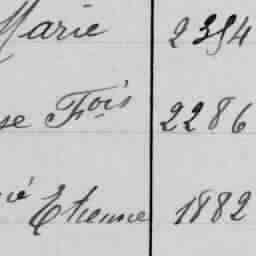 Marie 2354
se Fois 2286
ié Etienne 1882